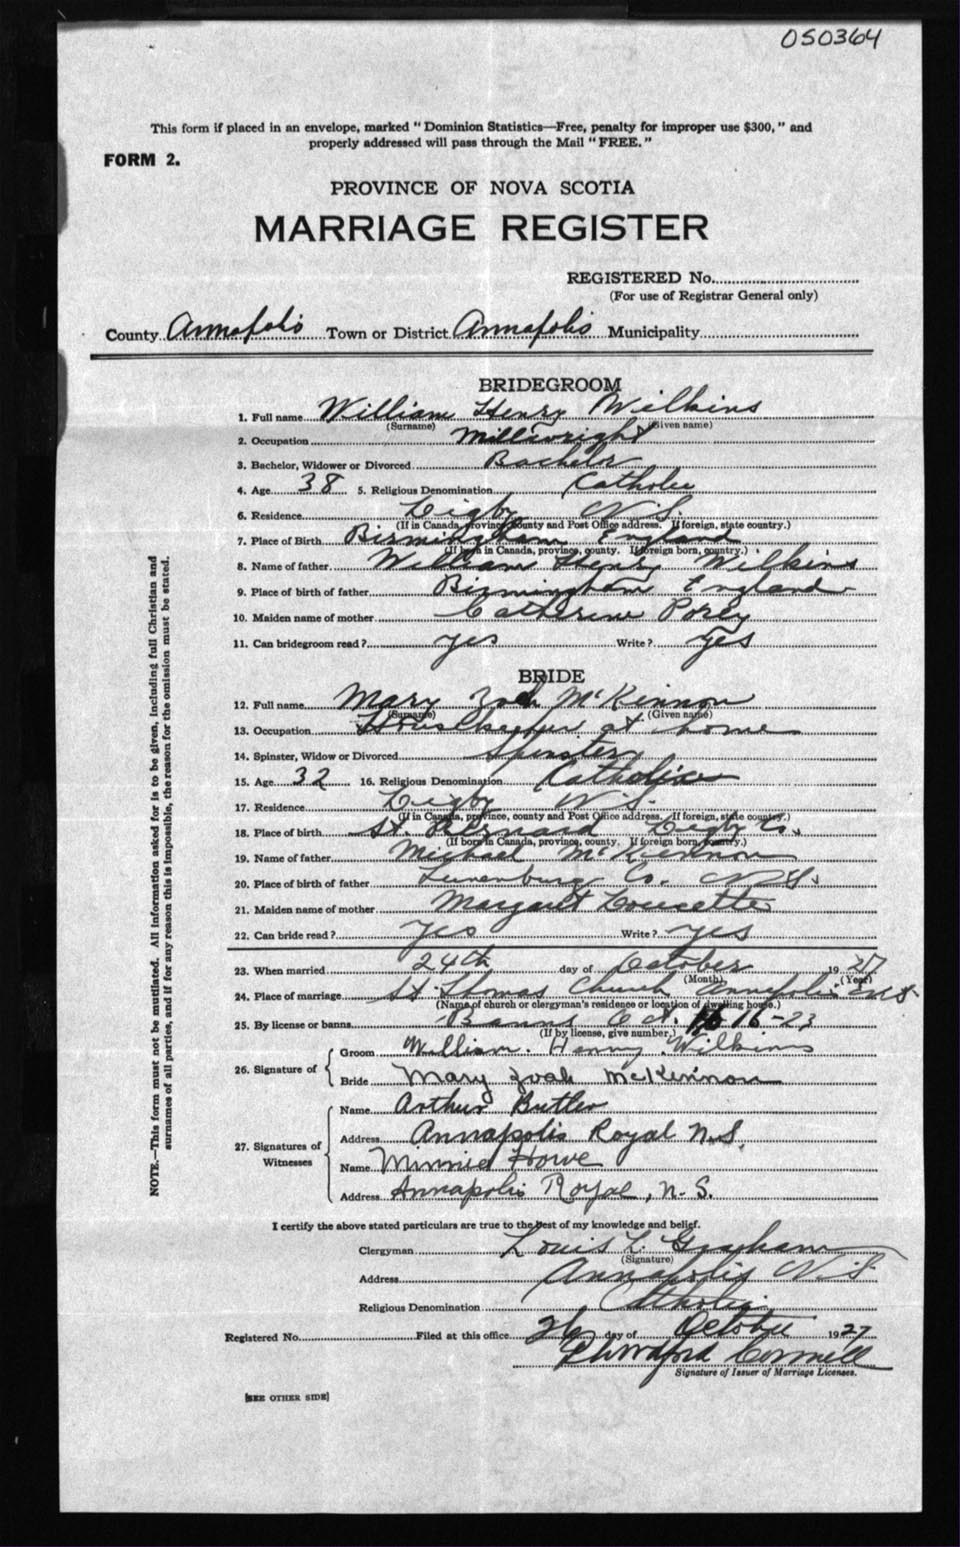 050364
This form if placed in an envelope, marked "Dominion Statistics—Free, penalty for improper use $300," and
properly addressed will pass through the Mail "FREE."
FORM 2.
PROVINCE OF NOVA SCOTIA
MARRIAGE REGISTER
REGISTERED No.
(For use of Registrar General only)
County Annapolis Town or District Annapolis Municipality
BRIDEGROOM
1. Full name William Henry Wilkins
(Surname) (Given name)
2. Occupation Millwright
3. Bachelor, Widower or Divorced Bachelor
4. Age 38 5. Religious Denomination Catholic
6. Residence Digby N.S.
(If in Canada, province, county and Post Office address. If foreign, state country.)
7. Place of Birth Birmingham England
(If born in Canada, province, county. If foreign born, country.)
8. Name of father William Henry Wilkins
9. Place of birth of father Birmingham England
10. Maiden name of mother Catherine
11. Can bridegroom read? yes Write? yes
BRIDE
12. Full name Mary Zoah McKinnon
(Surname) (Given name)
13. Occupation Housekeeper at home
14. Spinster, Widow or Divorced Spinster
15. Age 32 16. Religious Denomination Catholic
17. Residence Digby N.S.
(If in Canada, province, county and Post Office address. If foreign, state country.)
18. Place of birth St. Bernard Digby Co.
(If born in Canada, province, county. If foreign born, country.)
19. Name of father Michael McKinnon
20. Place of birth of father Lunenburg Co. N.S.
21. Maiden name of mother Margaret Doucette
22. Can bride read? yes Write? yes
23. When married 24th day of October 1927
(Month) (Year)
24. Place of marriage St Thomas Church Annapolis N.S.
(Name of church or clergyman's residence or location of dwelling house.)
25. By license or banns Banns Oct. 16-23
(If by license, give number.)
26. Signature of
Groom William Henry Wilkins
Bride Mary Zoah McKinnon
27. Signatures of Witnesses
Name Arthur Butler
Address Annapolis Royal N.S.
Name Minnie Howe
Address Annapolis Royal, N.S.
I certify the above stated particulars are true to the best of my knowledge and belief.
Clergyman Louis L. Graham
(Signature)
Address Annapolis N.S.
Religious Denomination Catholic
Registered No. Filed at this office 26 day of October 1927
Signature of Issuer of Marriage Licenses.
[SEE OTHER SIDE]
NOTE.—This form must not be mutilated. All information asked for is to be given, including full Christian and
surnames of all parties, and if for any reason this is impossible, the reason for the omission must be stated.